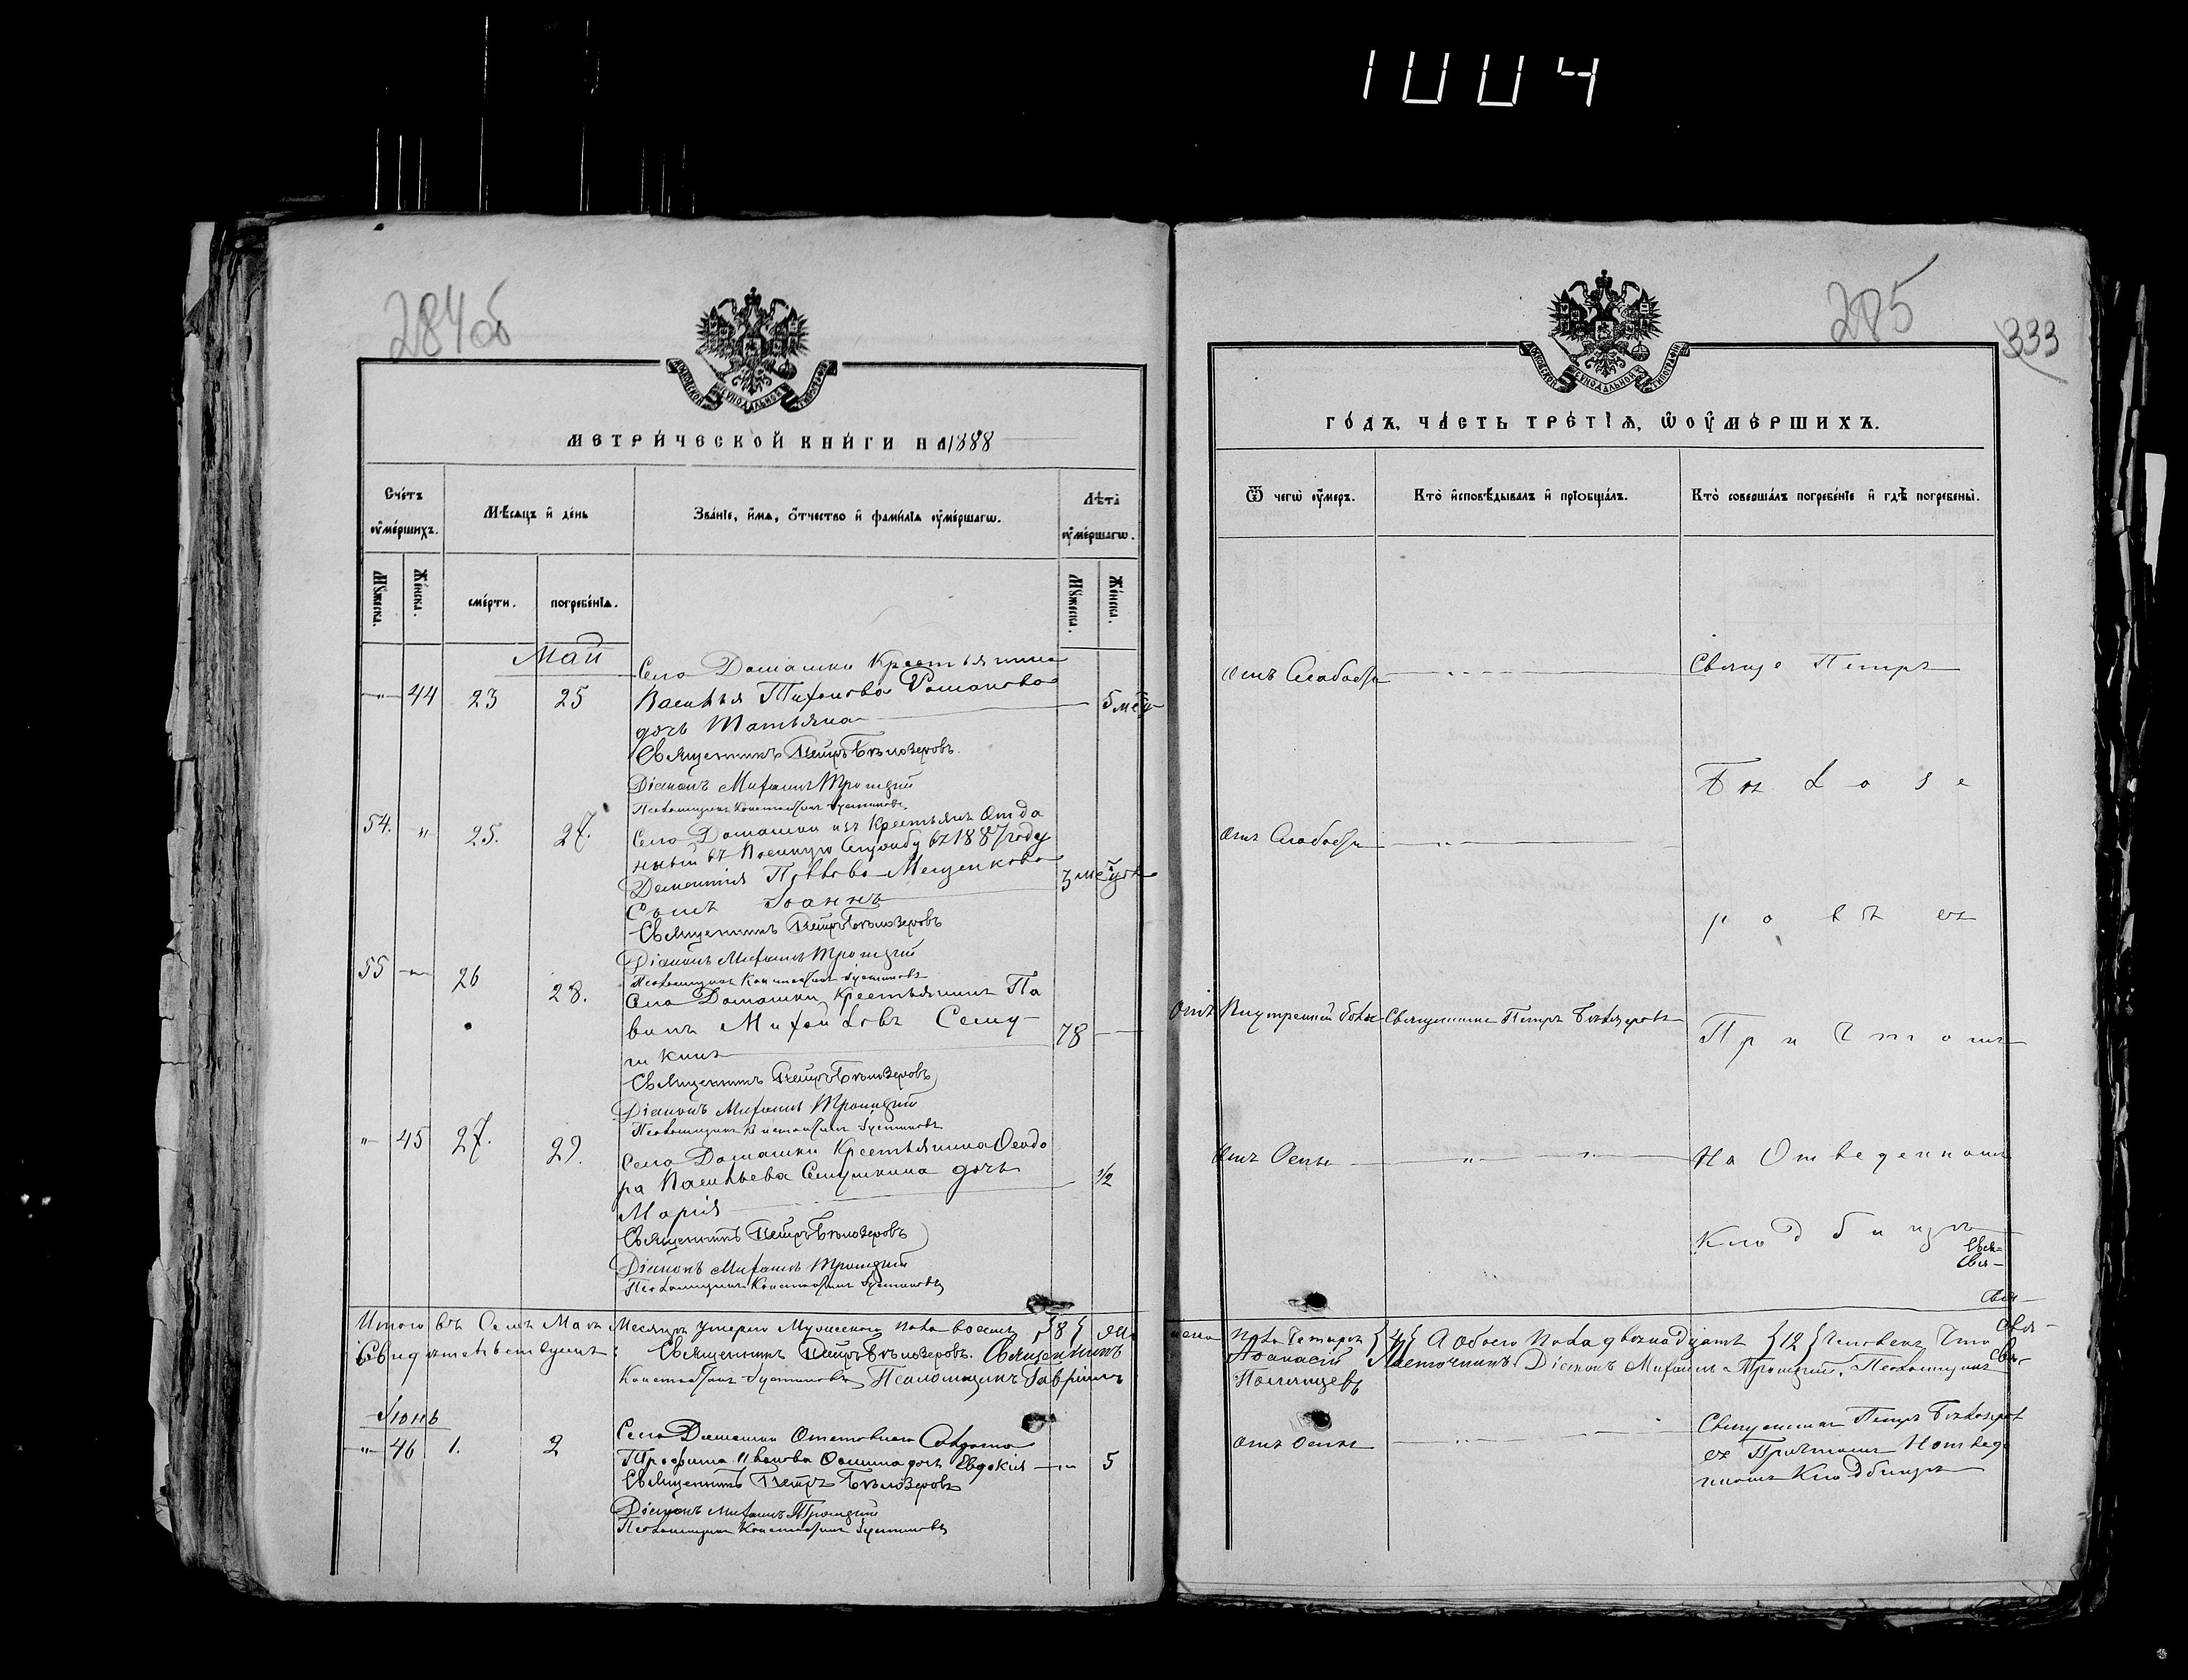 1004
284об
МЕТРИЧЕСКОЙ КНИГИ НА 1888
Счетъ умершихъ.
Мѣсяцъ и день
Званіе, имя, отчество и фамилія умершагѡ.
Лѣта умершагѡ.
Мужеска.
Женска.
смерти.
погребенія.
Мужеска.
Женска.
Май
" 44 23 25
Село Домашки Крестьянина
Василья Тихонова Романова
дочь Татьяна
5 мѣс
Священникъ Петръ Бѣлозеровъ
Діаконъ Михаилъ Троицкій
Псаломщикъ Константинъ
54. " 25. 27.
Село Домашки изъ Крестьянъ Отда
нный въ Военную Службу въ 1887 году
Дементія Мещенкова
Сынъ Іоаннъ
3 мѣсяца
Священникъ Петръ Бѣлозеровъ
Діаконъ Михаилъ Троицкій
Псаломщикъ Константинъ
55 " 26 28.
Село Домашки Крестьянинъ Па
велъ Михайловъ Сему
шкинъ
78
Священникъ Петръ Бѣлозеровъ
Діаконъ Михаилъ Троицкій
Псаломщикъ Константинъ
" 45 27. 29.
Село Домашки Крестьянина Ѳеодо
ра Васильева Семушкина дочь
Марія
1/2
Священникъ Петръ Бѣлозеровъ
Діаконъ Михаилъ Троицкій
Псаломщикъ Константинъ
Итого въ Семъ Маѣ Месяцѣ умерло Мужескаго пола восемь {8} жен
Свидѣтельствуютъ: Священникъ Петръ Бѣлозеровъ. Священникъ
Константинъ Псаломщикъ Гавріилъ
Іюнь
" 46 1. 2
Село Домашки Отставнаго Солдата
Трофима Иванова дочь Евдокія
5
Священникъ Петръ Бѣлозеровъ
Діаконъ Михаилъ Троицкій
Псаломщикъ Константинъ
285
333
ГОДЪ, ЧАСТЬ ТРЕТІЯ, Ѡ УМЕРШИХЪ.
Ѿ чегѡ умеръ.
Кто исповѣдывалъ и пріобщалъ.
Кто совершалъ погребеніе и гдѣ погребены.
Отъ Слабости
Свящ Петръ
Бѣлозе
Отъ Слабости
ровъ съ
Отъ Внутренней боли
Священникъ Петръ Бѣлозеровъ
Причтомъ
Отъ Оспы
На Отведенномъ
Кладбищѣ
скаго Пола Четыре {4} А Обоего Пола двенадцать {12} Человекъ Что
Аѳанасій Ласточкинъ Діаконъ Михаилъ Троицкій. Псаломщикъ
Отъ Оспы
Священникъ Петръ Бѣлозеровъ
съ Причтомъ На отведе
нномъ Кладбищѣ